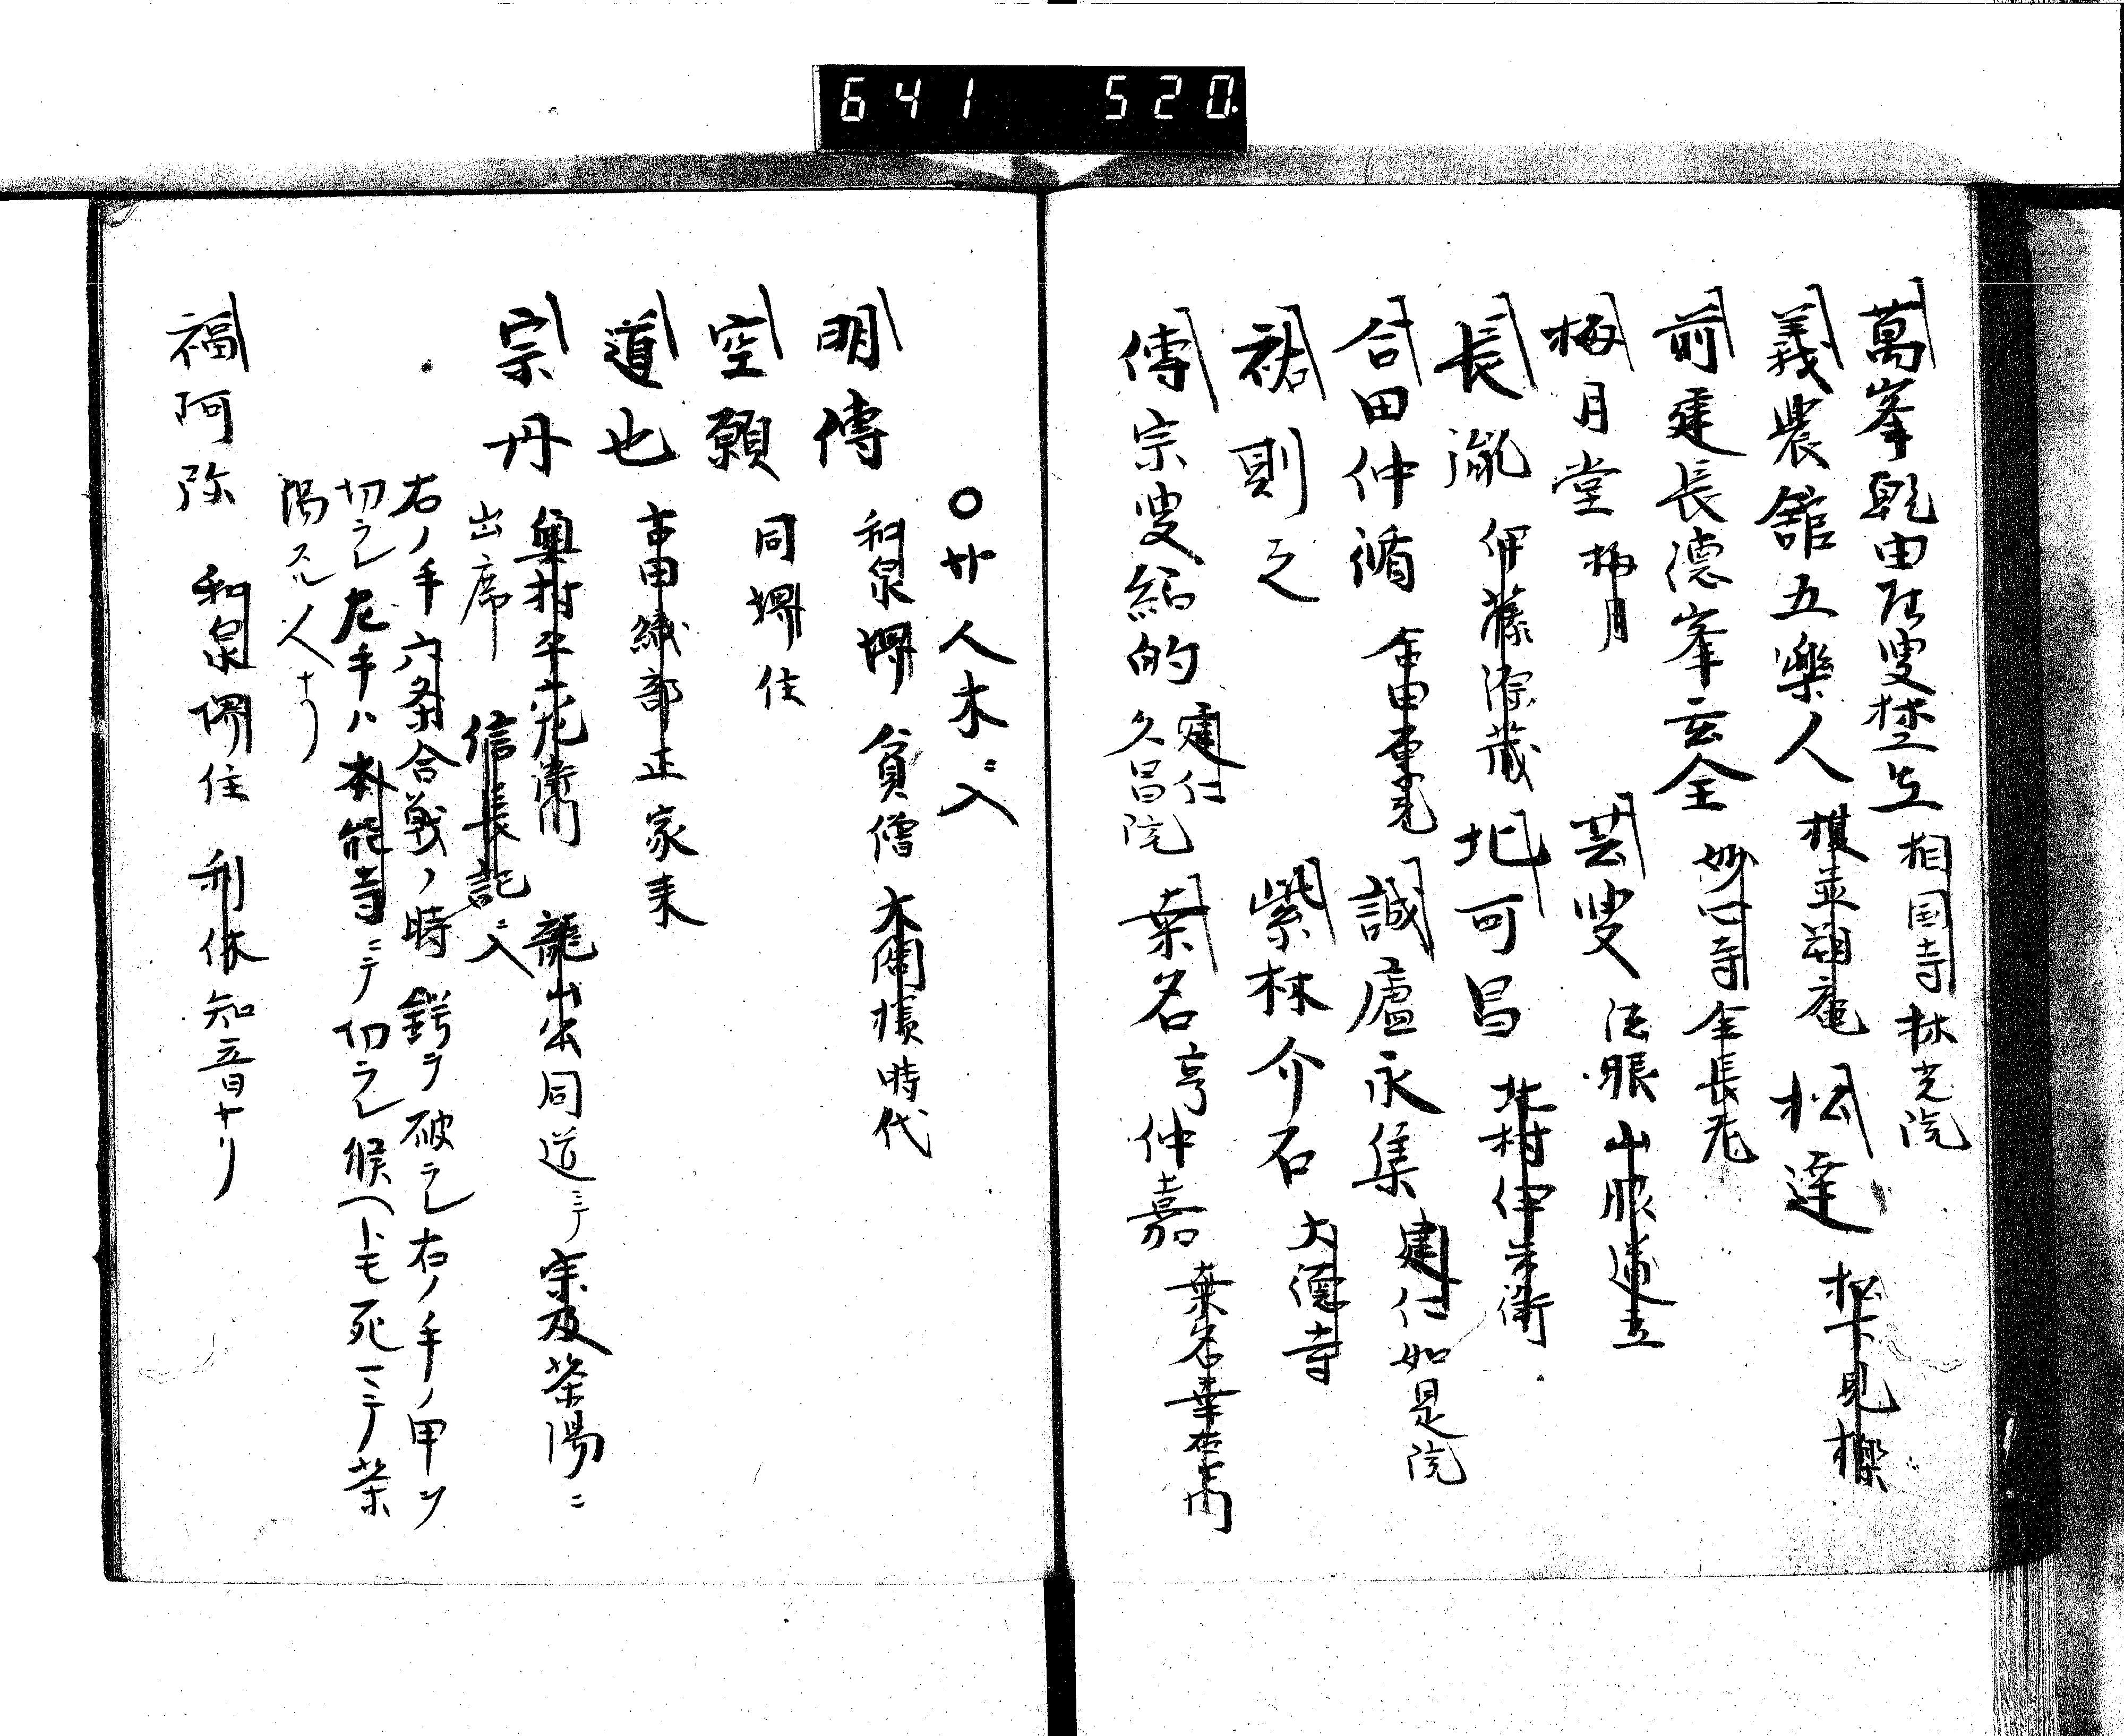 641 520
萬峯 由 叟 相国寺林光院
義農舘五樂人 松達 松下見櫟
前建長德峯玄全 妙心寺全長老
梅月堂 梅月 芸叟 法眼山脇道立
長胤 伊藤源蔵 北可昌 北村伊兵衛
合田仲循 合田 誠廬永集 建仁如是院
裾則之 紫林介石 大德寺
傳宗叟紹的 建仁久昌院 葉名亨仲嘉 葉名 左衛門
〇廿人衆ニ入
明傳 和泉堺 貧僧 大閤様時代
空願 同堺住
道也 古田織部正家来
宗丹 奥村平六左衛門 龍山公同道ニテ宗及茶湯ニ
出席 信長記ニ入
右ノ手六条合戦ノ時 鍔ヲ破ラレ右ノ手ノ甲ヲ
切ラレ左手ハ本能寺ニテ切ラレ候ヘトモ死ニテ茶
湯スル人ナリ
福阿弥 和泉堺住 利休知音ナリ